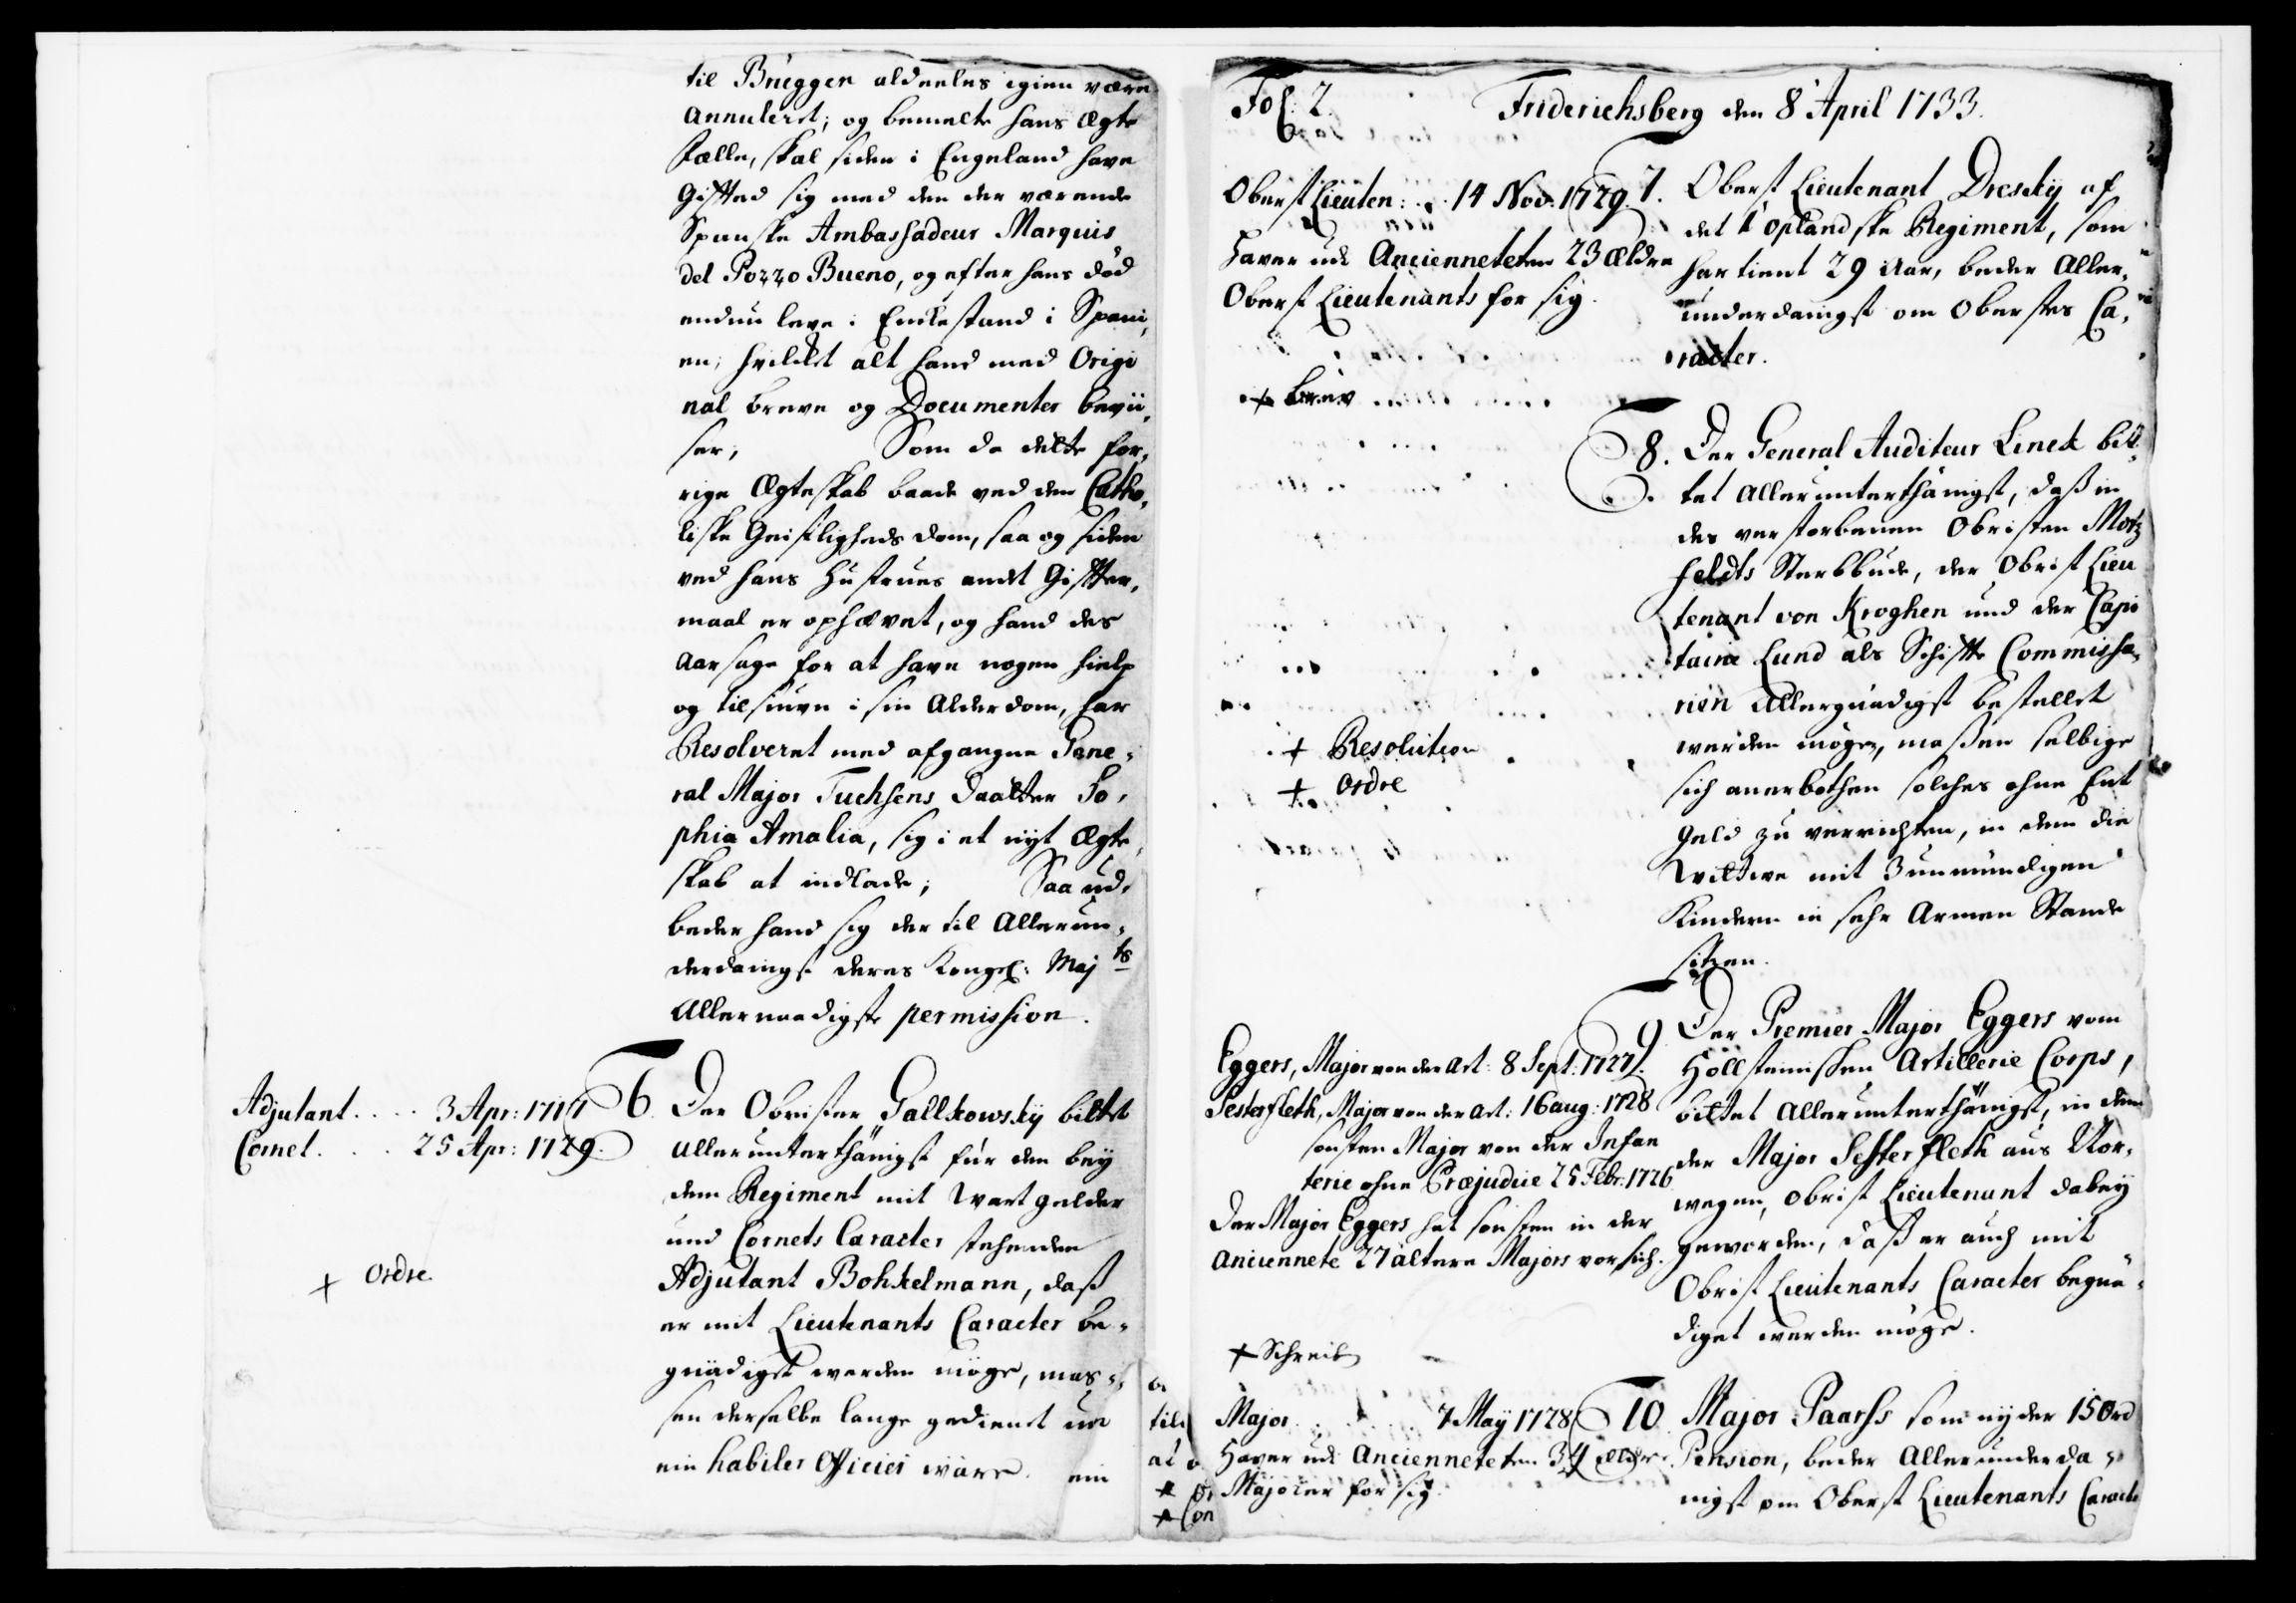 til Brüggen aldeeles igien være
Annuleret; og bemelte hans Ægte
fælle, skal siden i Engeland have
Giffted sig med den der værende
Spanske Ambassadeur Marquis
del Pozzo Bueno, og efter hans død
endnu leve i Enckestand i Spani,
en, hvilket alt hand med Origi
nal breve og Documenter bevii,
ser, Som da dette for,
rige Ægteskab baade ved den Catho,
liske Geistligheds dom, saa og siden
ved hans Hustrues andet Giffter,
maal er ophævet, og hand des
Aarsage for at have nogen hielp
og tilsiuun i sin Alderdom, har
Resolveret med afgangne Gene,
ral Major Fuchsens Daatter So,
phia Amalia, sig i et nyt Ægte,
skab at indlade; Saa ud,
beder hand sig der til Allerun,
derdanigst deres Kongel: Maj ts
Allernaadigste permission.
Adjutant .... 3 Apr: 1717
Cornet. ... 25 Apr: 1729.
+ Ordre.
6. Der Obrister Gallkowskÿ bittet
Allerunterthänigst für den beÿ
dem Regiment mit Wart gelder
und Cornets Caracter stehenden
Adjutant Bohkelmann, daß
er mit Lieutenants Caracter be,
gnädiget werden möge, mas,
sen derselbe lange gedienet und
ein habiler Officier wäre. ein
til
at
+ Or
+ Con
Fol: 2. Friderichsberg den 8 April 1733.
Oberst Lieuten: .. 14 Nov. 1729.
Haver udi Ancienneteten 23 ældre
Oberst Lieutenants for sig.
+ brev
7. Oberst Lieutenant Dreskÿ af
det 1 Oplandske Regiment, som
har tient 29 Aar, beder Aller,
underdanigst om Oberstes Ca,
racter.
8. Der General Auditeur Linck bit,
tet Allerunterthänigst, daß in
des verstorbenen Obristen Motz
feldts Sterbbude, der Obrist Lieu
tenant von Kroghen und der Capi
taine Lund als Schiffte Commissa,
rien Allergnädigst bestellet
werden mögen, maßen selbige
sich anerbothen solches ohne Ent
Geld zu verrichten, in dem die
Wittwe mit 3 unmündigen
Kindern in sehr Armen Stande
sitzen.
+ Resolution
+ Ordre
Eggers, Major von der Art: 8 Sept: 1727.
Sesterfleth, Major von der Art: 16 aug: 1728
sonsten Major von der Infan
terie ohne Præjudice 25 Febr: 1726
Der Major Eggers hat sonsten in der
Anciennete 27 ältere Majors vor sich.
+ Schreib
9. Der Premier Major Eggers vom
Hollsteinischen Artillerie Corps,
bittet Allerunterthänigst, in dem
der Major Sesterfleth aus Nor,
wegen, Obrist Lieutenant dabeÿ
geworden, daß er auch mit
Obrist Lieutenants Caracter begnä,
diget werden möge.
Major . . . 7 Maÿ 1728
Haver udi Ancienneteten 34 ældre
Majorer for sig.
10. Major Paarss som nyder 150 rd
Pension, beder Allerunderda,
nigst om Oberst Lieutenants Caracte